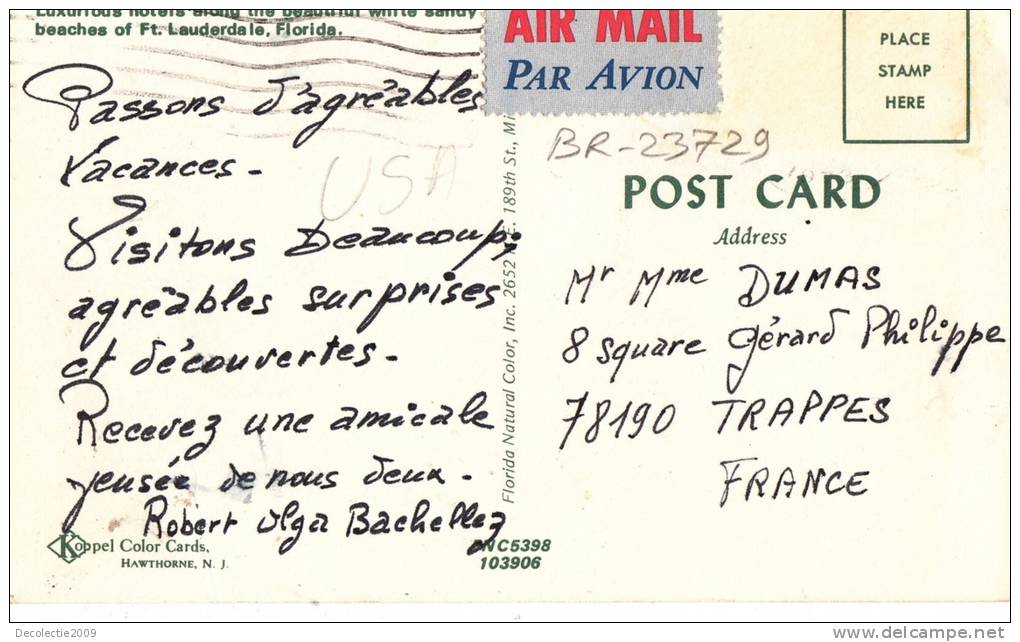 Luxurious hotels along the beautiful white sandy
beaches of Ft. Lauderdale, Florida.
Passons d'agréables
Vacances -
Visitons beaucoup;
agréables surprises
et découvertes -
Recevez une amicale
pensée de nous deux -
Robert Olga Bachellez
USA
Koppel Color Cards,
HAWTHORNE, N. J.
FNC5398
103906
Florida Natural Color, Inc. 2652 N.E. 189th St., Mi
AIR MAIL
PAR AVION
PLACE
STAMP
HERE
BR-23729
POST CARD
Address
Mr Mme DUMAS
8 square Gérard Philippe
78190 TRAPPES
FRANCE
Decolectie2009
delcampe.net